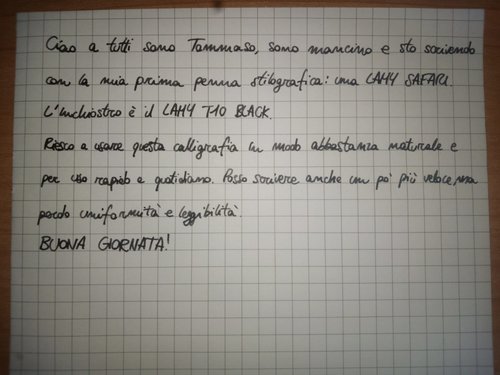 Ciao a tutti sono Tommaso, sono mancino e sto scrivendo
con la mia prima penna stilografica: una LAMY SAFARI.
L'inchiostro è il LAMY T10 BLACK.
Riesco a usare questa calligrafia in modo abbastanza naturale e
per uso rapido e quotidiano. Posso scrivere anche un po' più veloce, ma
perdo uniformità e leggibilità.
BUONA GIORNATA!